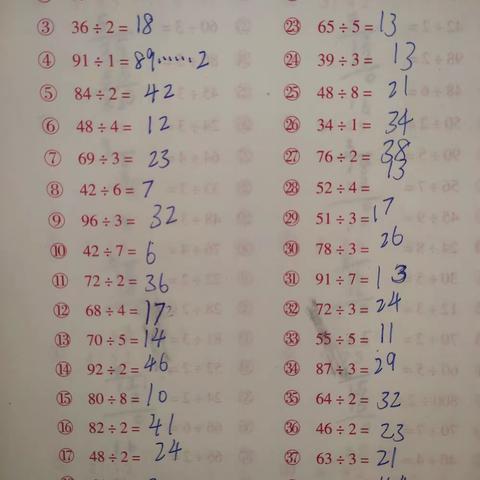 ③ 36÷2= 18
④ 91÷1= 89……2
⑤ 84÷2= 42
⑥ 48÷4= 12
⑦ 69÷3= 23
⑧ 42÷6= 7
⑨ 96÷3= 32
⑩ 42÷7= 6
⑪ 72÷2= 36
⑫ 68÷4= 17
⑬ 70÷5= 14
⑭ 92÷2= 46
⑮ 80÷8= 10
⑯ 82÷2= 41
⑰ 48÷2= 24
㉓ 65÷5= 13
㉔ 39÷3= 13
㉕ 48÷8= 21
㉖ 34÷1= 34
㉗ 76÷2= 38
㉘ 52÷4= 13
㉙ 51÷3= 17
㉚ 78÷3= 26
㉛ 91÷7= 13
㉜ 72÷3= 24
㉝ 55÷5= 11
㉞ 87÷3= 29
㉟ 64÷2= 32
㊱ 46÷2= 23
㊲ 63÷3= 21